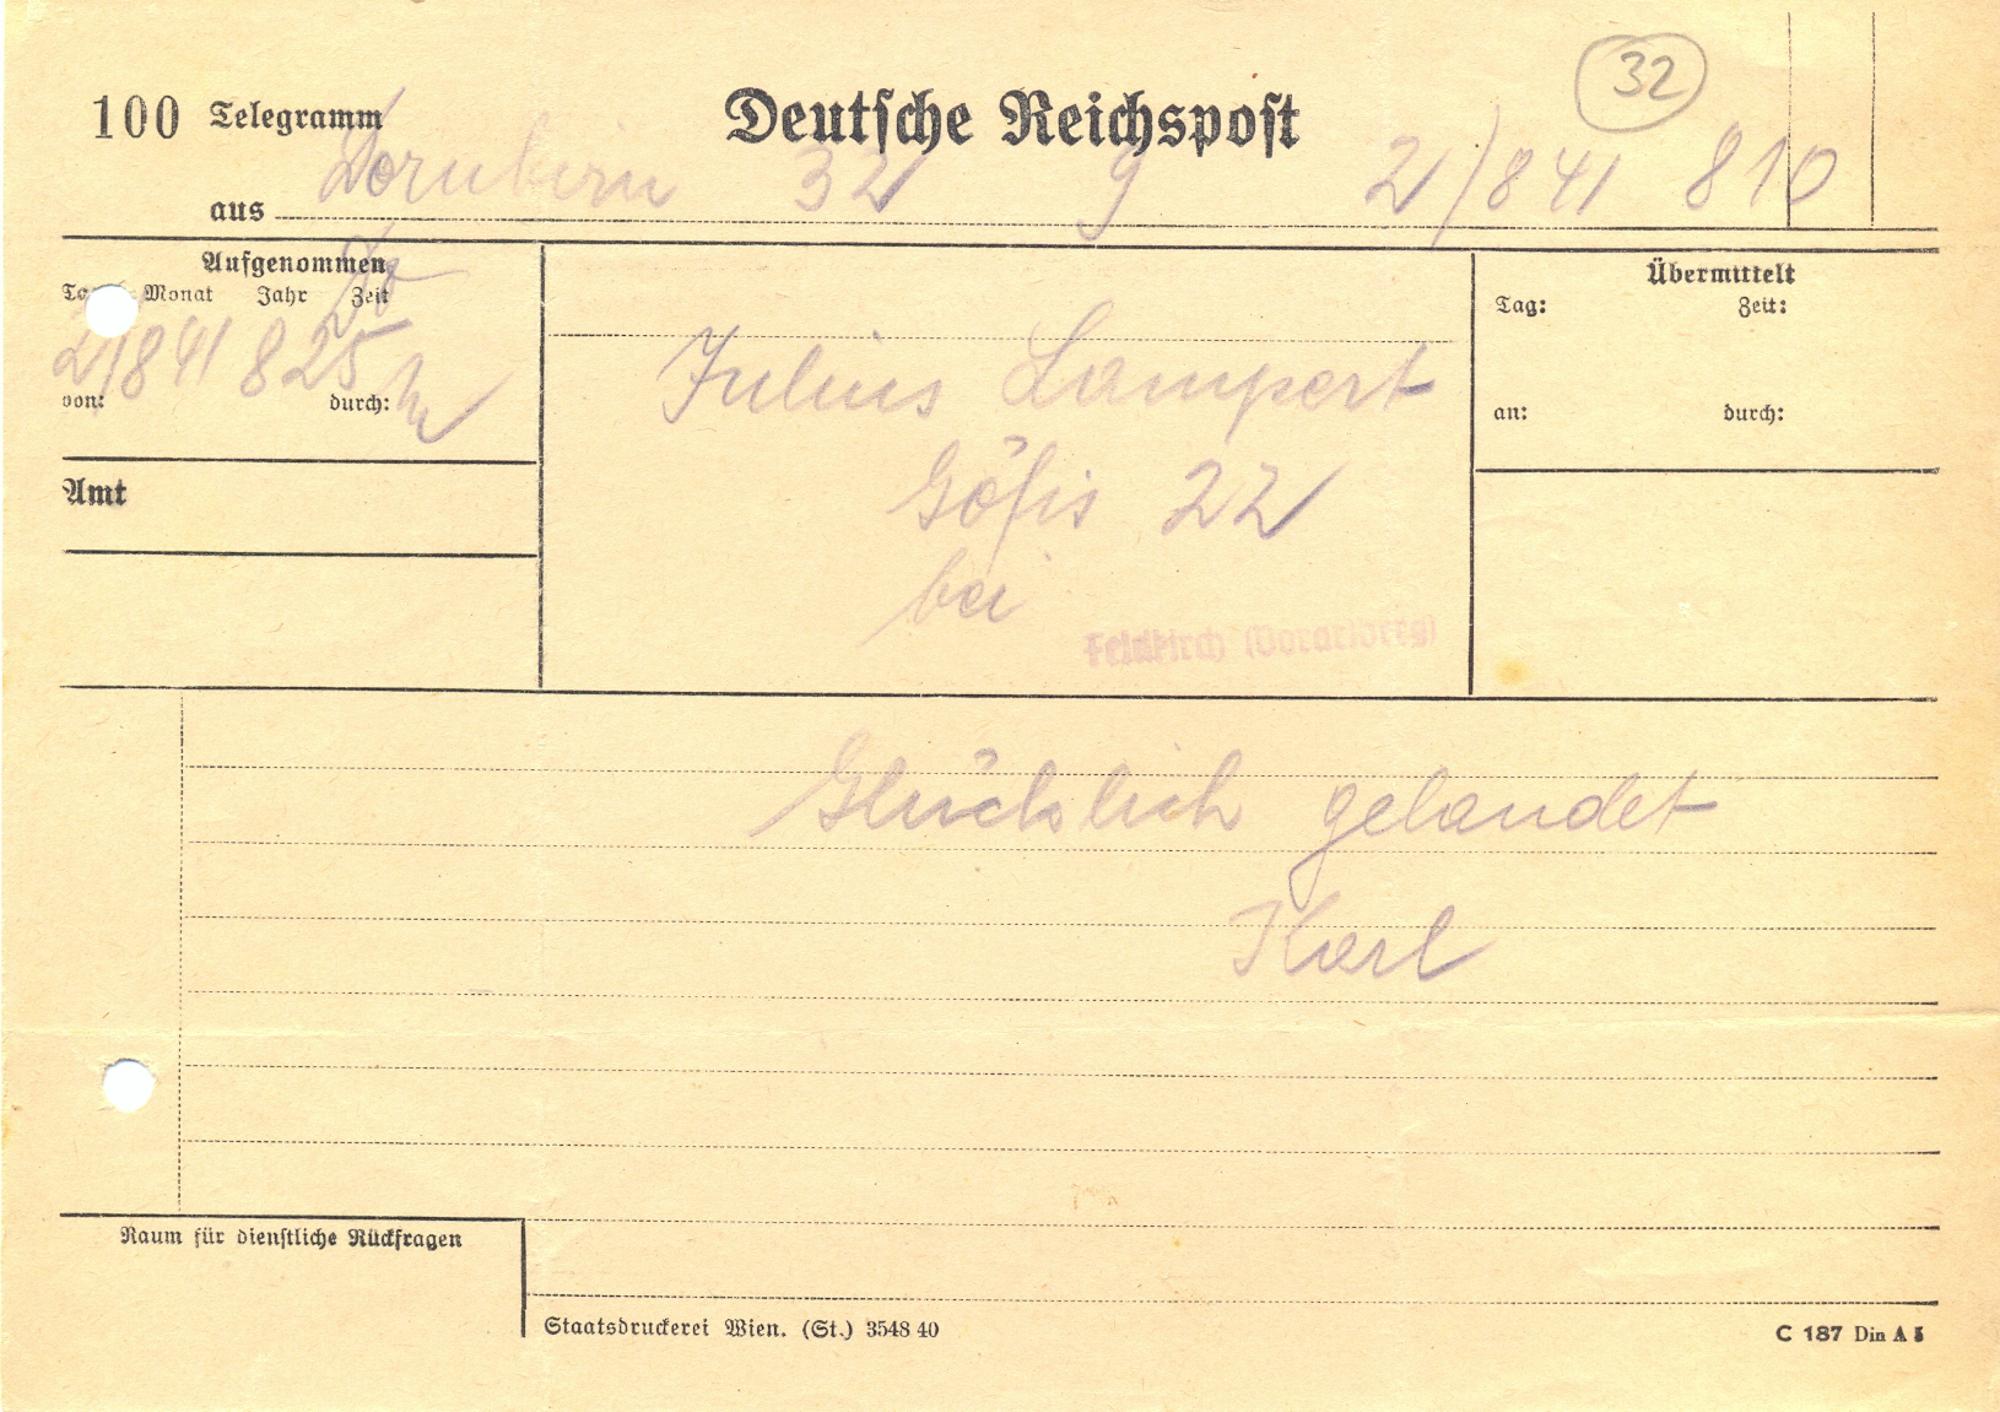 32
100 Telegramm Deutsche Reichspost
aus Dornbirn 32 9 2/841 810
Aufgenommen Übermittelt
Monat Jahr Zeit Tag: Zeit:
2/841 825
von: durch: an: durch:
Julius Lampert
Göfis 22
Amt
bei Feldkirch (Vorarlberg)
Glücklich gelandet
Karl
Raum für dienstliche Rückfragen
Staatsdruckerei Wien. (St.) 3548 40 C 187 Din A 5